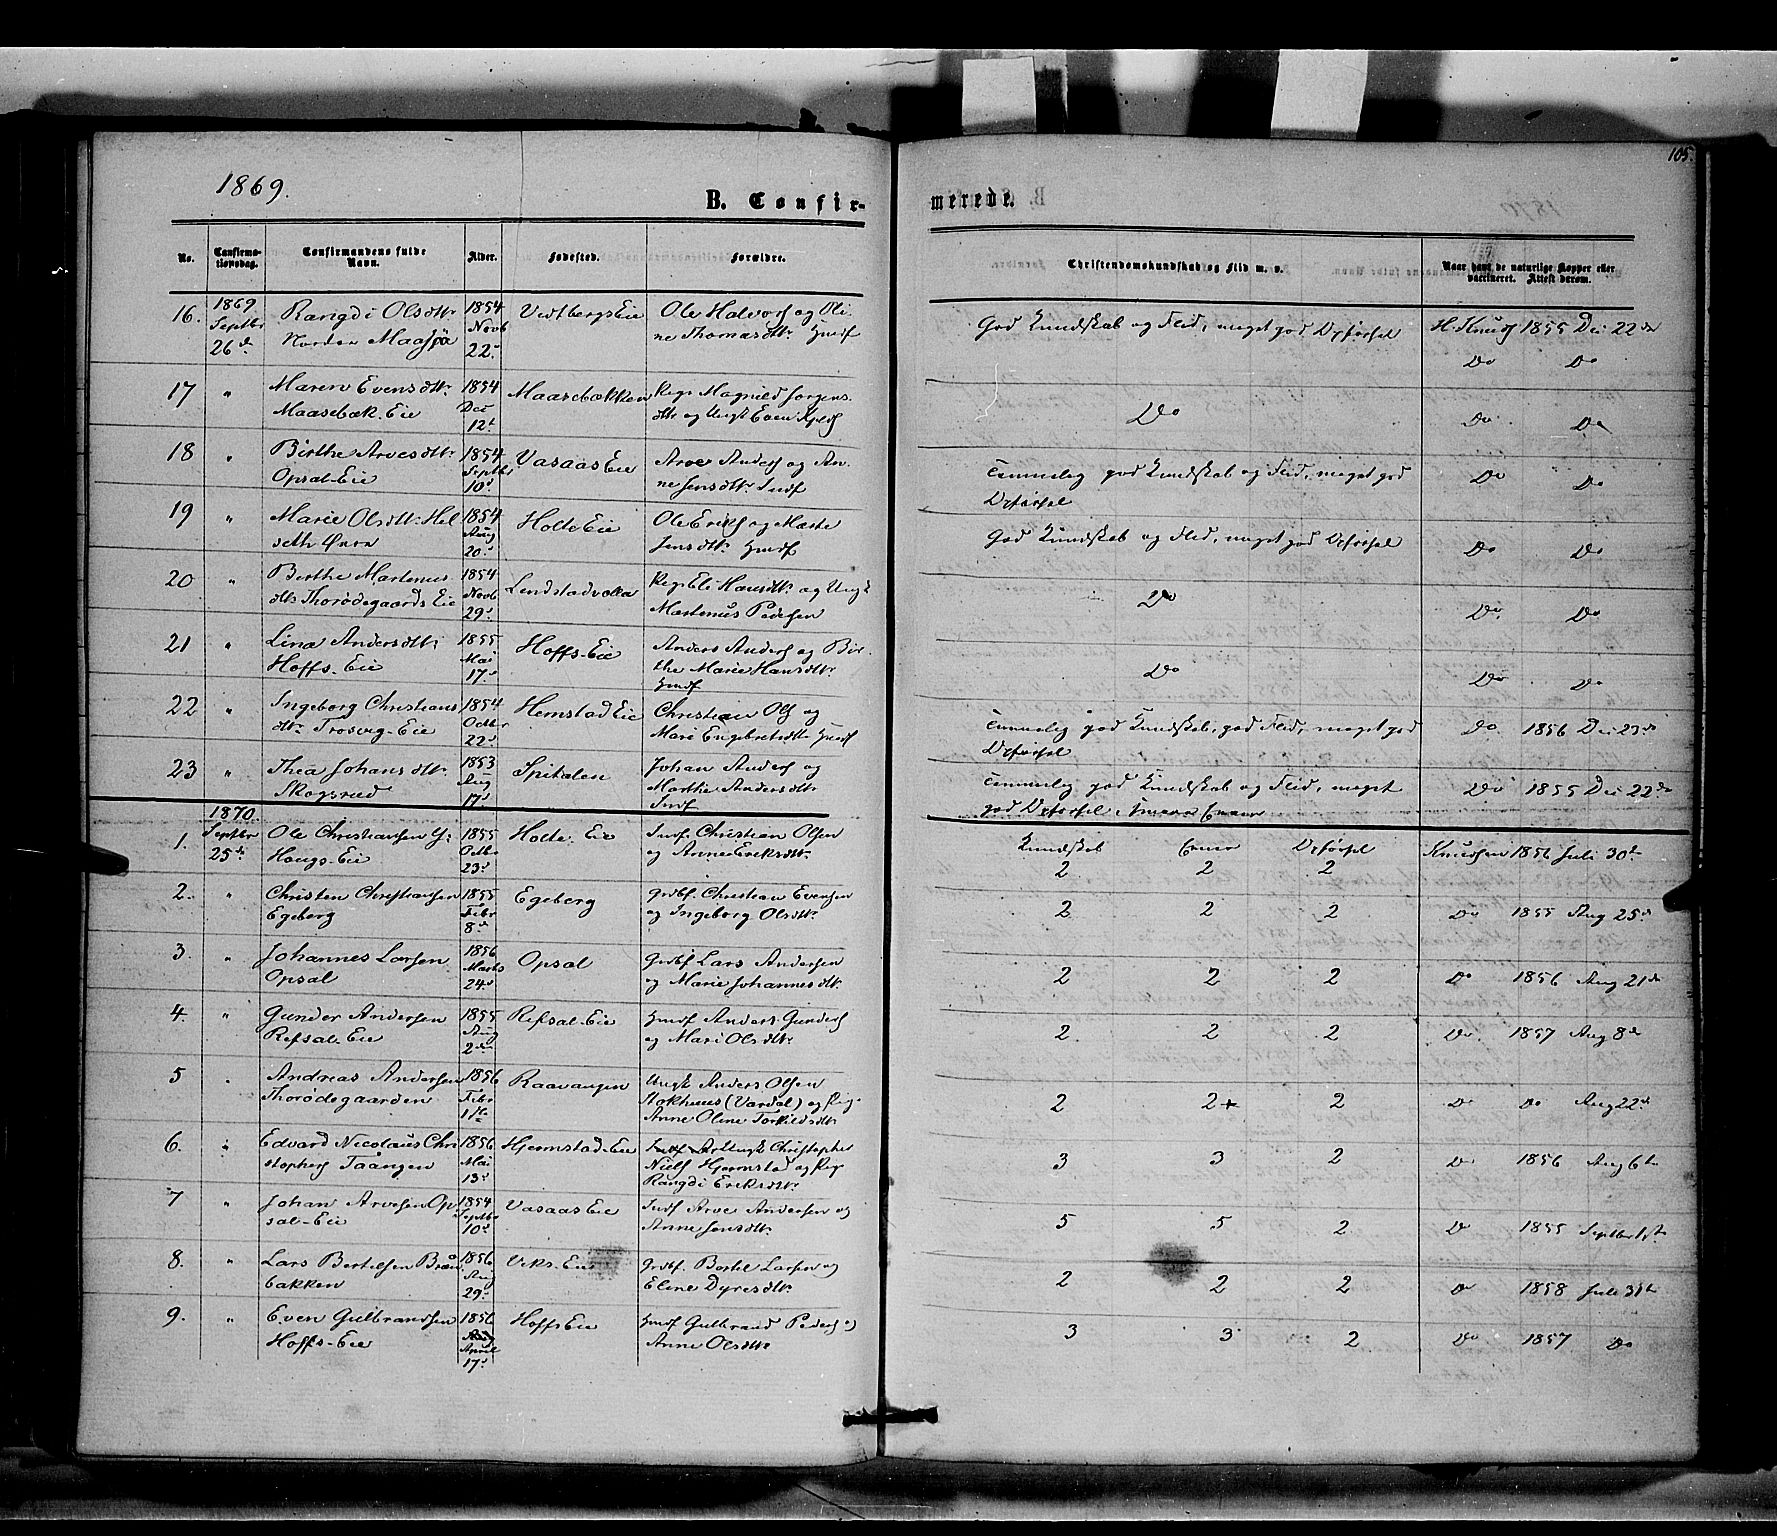 105.
1869.
B. Confir-
merede.
No.
Confirma-
tionsdag.
Confirmandens fulde
Navn.
Alder.
Fødested.
Forældre.
Christendomskundskab og Flid m. v.
Naar havt de naturlige Kopper eller
vaccineret. Attest derom.
16. 1869 Rangdi Olsdtr 1854 VestbergsEie Ole Halvors og Oli- God Kundskab og Flid, meget god Opførsel H. Knuds 1855 Dec 22de
Septbr Nordre Maasjø Novb ne Thomasdtr Husf
26de 22de Do Do
17 " Maren Evensdtr 1854 Maasebækken Pige Magnild Jørgens
Maasebæk-Eie Dec dtr og Ungk Even Do Do Do
12te
18 " Birthe Arvesdtr 1854 Vasaas Eie Arve Anders og An- Temmelig god Kundskab og Flid, meget god Do Do
Opsal-Eie Septbr ne Jensdtr Indf Opførsel
10de
19 " Marie Olsdtr Hel 1854 Holte Eie Ole Eriks og Marte God Kundskab og Flid, meget god Opførsel
seth Øvre Aug Jensdtr Husf Do Do
20de
20 " Birthe Martinus 1854 Lindstadvolla Pige Eli Hansdtr og Ungk Do
dtr Thorødegaards Eie Novb Martinus Pedersen Do Do
29de
21 " Lina Andersdtr 1855 Hoffs-Eie Anders Anders og Bir-
Hoffs-Eie Mai the Marie Hansdtr Do Do Do
17de Husf
22 " Ingeborg Christians 1854 Hemstad Eie Christian Ols og Temmelig god Kundskab, god Flid, meget god Do 1856 Dec 23de
dtr Trosvig-Eie Octbr Mari Engebretsdtr Husf Opførsel
22de
23 " Thea Johansdtr 1853 Spitalen Johan Anders og Temmelig god Kundskab og Flid, meget Do 1855 Dec 22de
Skogsrud Aug Marthe Andersdtr god Opførsel
17de Indf
1870
1. Septbr Ole Christiansen 1855 Holte-Eie Indf Christian Olsen Kundskab Opførsel Knudsen 1856 Juli 30te
25de Haugs-Eie Octbr og Anne Eriksdtr 2 2 2
23de
2. " Christen Christiansen 1855 Egeberg Grdbf. Christian Evensen 2 2 2 Do 1855 Aug 25de
Egeberg Febr og Ingeborg Olsdtr
8de
3. " Johannes Larsen 1856 Opsal Grdbf Lars Andersen 2 2 2 Do 1856 Aug 21de
Opsal Marts og Marie Johannesdtr
24de
4. " Gunder Andersen 1855 Refsal-Eie Husf Anders Gunders 2 2 2 Do 1857 Aug 8de
Refsal-Eie Aug og Mari Olsdtr
2den
5 " Andreas Andersen 1856 Raavangen Ungk Anders Olsen
Thorødegaarden Febr Stokhuus (Vardal) og Pig 2 2 2 Do Do Aug 22de
11te Anne Oline Torkildsdtr
6. " Edvard Nicolaus Chri 1856 Hjermstad-Eie Ungk Christopher
stophers Taangen Mai Niels Hjermstad og Pig 3 3 2 Do 1856 Aug 6te
13de Rangdi Eriksdtr
7 " Johan Arvesen Op 1854 Vasaas Eie Indf Arve Andersen og 5 5 2 Do 1855 Septbr 1ste
sal-Eie Septbr Anne Jensdtr
10de
8. " Lars Bertilsen Braa 1856 Viks-Eie Grdbf. Bertil Larsen og 2 2 2 Do 1858 Juli 31te
bakken Aug Eline Dyresdtr
29de
9. " Even Gulbrandsen 1856 Hoffs Eie Husf Gulbrand Peders og 3 3 2 Do 1857 Do
Hoffs-Eie April Anne Olsdtr
17de